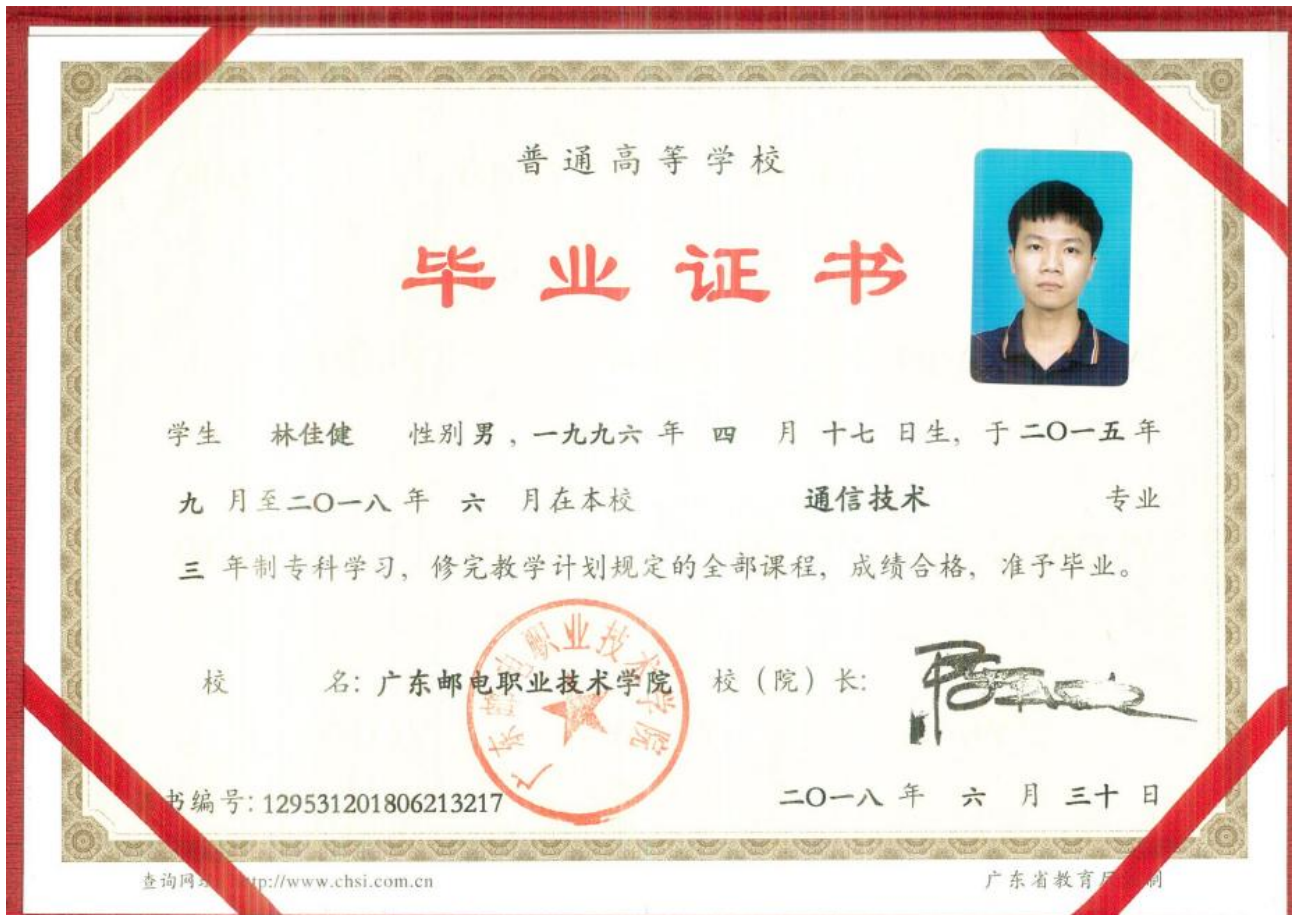 普通高等学校
毕业证书
学生 林佳健 性别 男，一九九六 年 四 月 十七 日生，于 二〇一五 年
九 月至 二〇一八 年 六 月在本校 通信技术 专业
三 年制专科学习，修完教学计划规定的全部课程，成绩合格，准予毕业。
校 名：广东邮电职业技术学院 校（院）长：
广东邮电职业技术学院
书编号：129531201806213217 二〇一八 年 六 月 三十 日
查询网 tp://www.chsi.com.cn 广东省教育厅 制